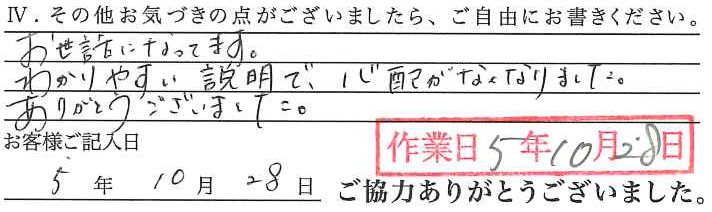 Ⅳ．その他お気づきの点がございましたら、ご自由にお書きください。
お世話になってます。
わかりやすい説明で、心配がなくなりました。
ありがとうございました。
お客様ご記入日
作業日5年10月28日
5年10月28日
ご協力ありがとうございました。